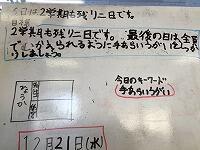 今日は2学期も残り二日です。
2学期も残り二日です。最後の日は全員
でむかえられるように手あらいうがいをしっか
りしましょう。
今日のキーワード
手あらいうがい
12月21日(水)